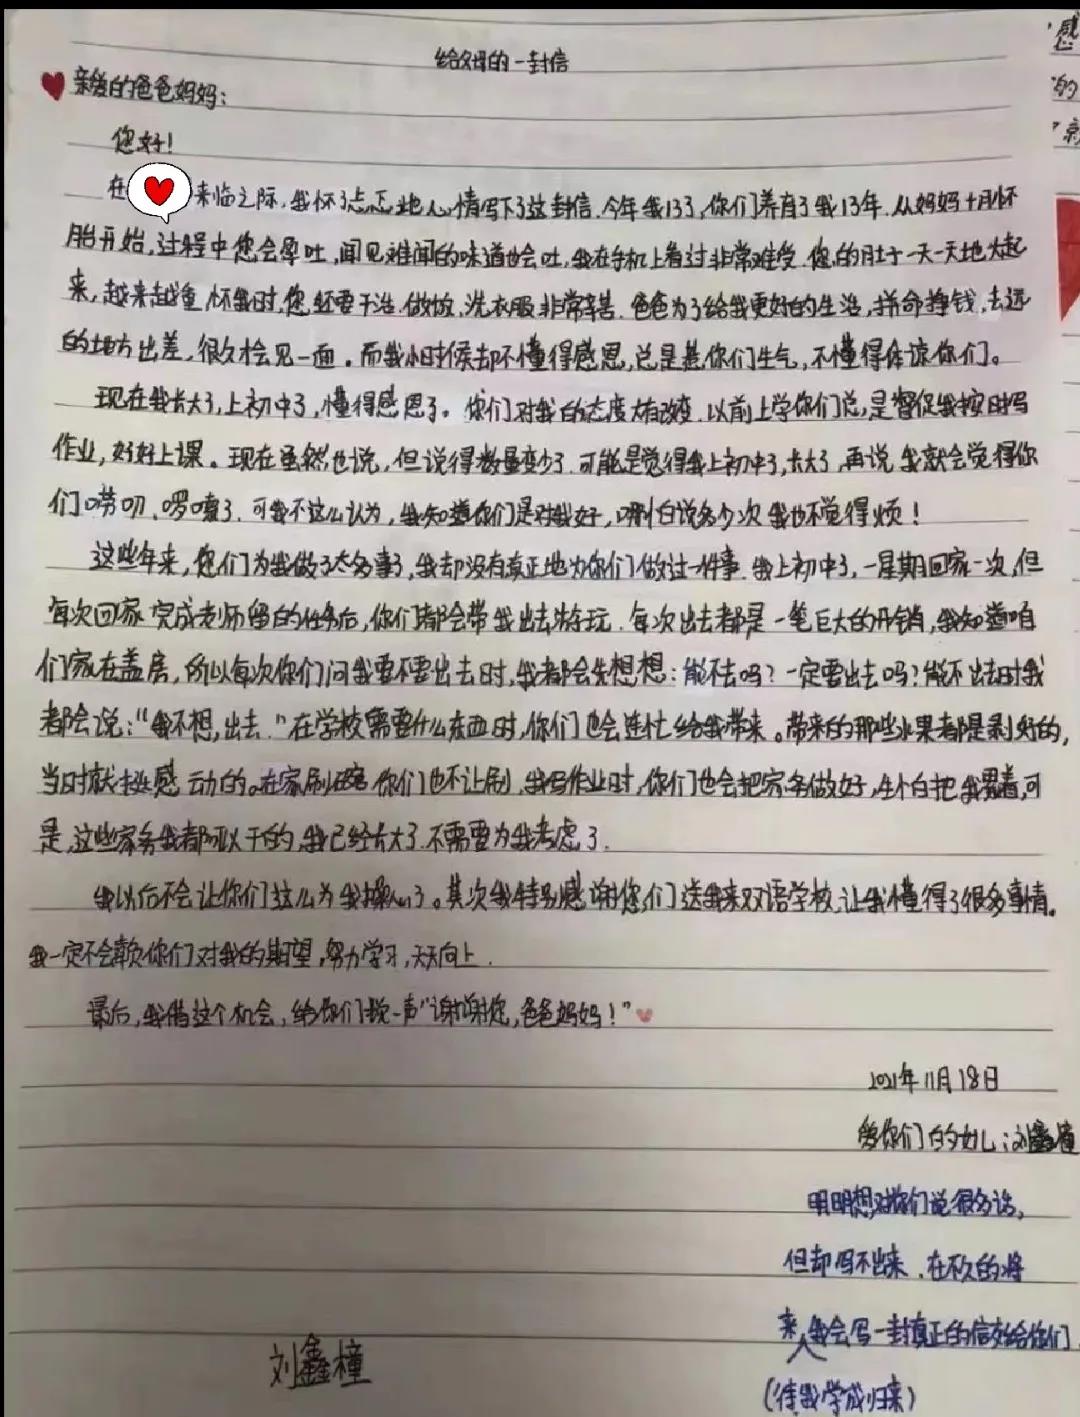 给父母的一封信
亲爱的爸爸妈妈:
您好!
在 来临之际,我怀了忐忑地心情写下了这封信.今年我13了,你们养育了我13年.从妈妈十月怀
胎开始,过程中您会孕吐,闻见难闻的味道也会吐,我在手机上看过非常难受.您的肚子一天一天地大起
来,越来越重,怀我时,您还要干活.做饭.洗衣服非常辛苦.爸爸为了给我更好的生活,拼命挣钱,去远
的地方出差,很久才会见一面。而我小时候却不懂得感恩,总是惹你们生气,不懂得体谅你们。
现在我长大了,上初中了,懂得感恩了。你们对我的态度大有改变.以前上学你们总是督促我按时写
作业,好好上课。现在虽然也说,但说得数量变少了.可能是觉得我上初中了,长大了,再说我就会觉得你
们唠叨、啰嗦了.可我不这么认为,我知道你们是对我好,哪怕说多少次我也不觉得烦!
这些年来,您们为我做了太多事了,我却没有真正地为你们做过一件事.我上初中了,一星期回家一次,但
每次回家完成老师留的任务后,你们都会带我出去游玩.每次出去都是一笔巨大的开销,我知道咱
们家在盖房,所以每次你们问我要不要出去时,我都会先想想:能不去吗?一定要出去吗?能不出去时我
都会说:“我不想,出去.”在学校需要什么东西时,你们也会连忙给我带来。带来的那些水果都是剥好的,
当时就挺感动的。在家刷碗你们也不让刷,我写作业时,你们也会把家务做好,生怕把我累着,可
是,这些家务我都可以干的,我已经长大了.不需要为我考虑了.
我以后不会让你们这么为我操心了。其次我特别感谢您们送我来双语学校,让我懂得了很多事情。
我一定不会辜负你们对我的期望,努力学习,天天向上.
最后,我借这个机会,给你们说一声“谢谢您,爸爸妈妈!”
2021年11月18日
爱你们的女儿:刘鑫橦
明明想对你们说很多话,
但却写不出来.在不久的将
来,我会写一封真正的信交给你们
刘鑫橦
(待我学成归来)